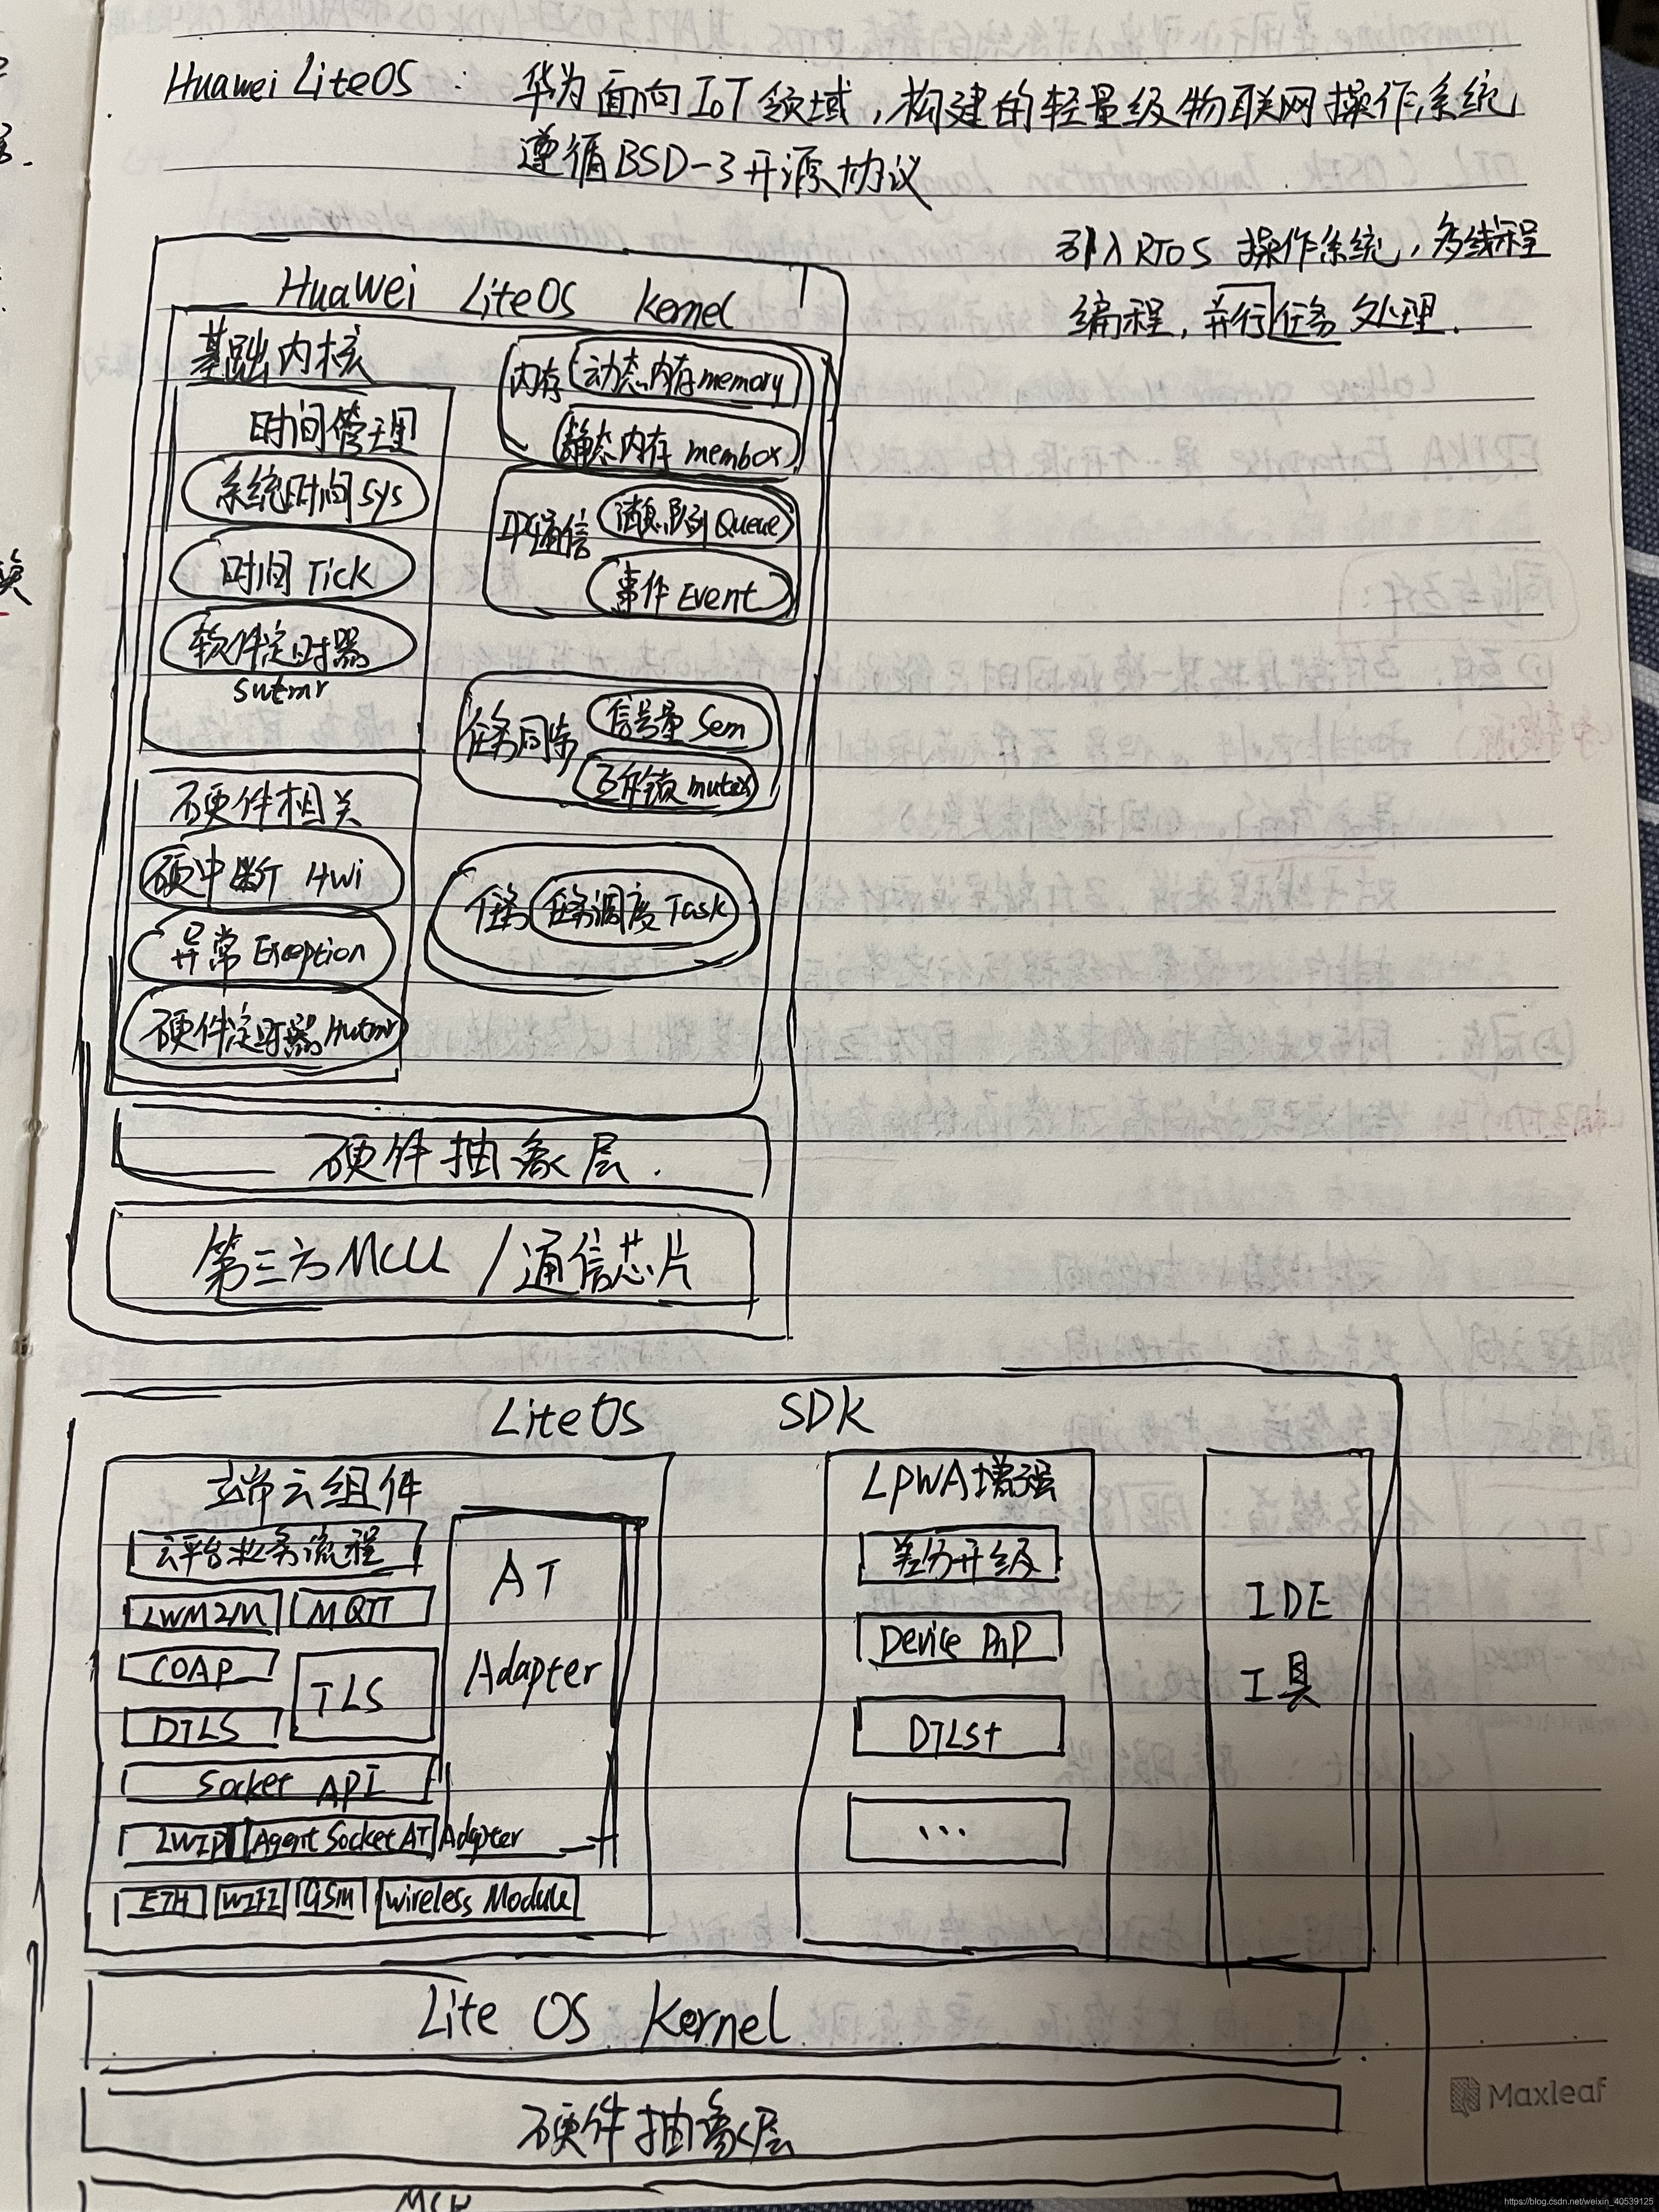 Huawei LiteOS : 华为面向IoT领域,构建的轻量级物联网操作系统
遵循BSD-3开源协议
引入RTOS 操作系统,多线程
编程,并行任务处理.
Huawei LiteOS Kernel
基础内核
时间管理
系统时间 sys
时间 Tick
软件定时器
swtmr
硬件相关
硬中断 Hwi
异常 Exception
硬件定时器 Hwtmr
内存 动态内存 memory
静态内存 membox
IPC通信 消息队列 Queue
事件 Event
任务同步 信号量 Sem
互斥锁 mutex
任务 任务调度 Task
硬件抽象层.
第三方MCU / 通信芯片
LiteOS SDK
端云组件
云平台业务流程
LWM2M MQTT
COAP
TLS
DTLS
Socket API
LWIP Agent Socket AT Adapter
ETH WIFI GSM Wireless Module
AT
Adapter
LPWA增强
差分升级
Device PnP
DTLS+
...
IDE
工具
Lite OS Kernel
硬件抽象层
MCU
Maxleaf
https://blog.csdn.net/weixin_40539125